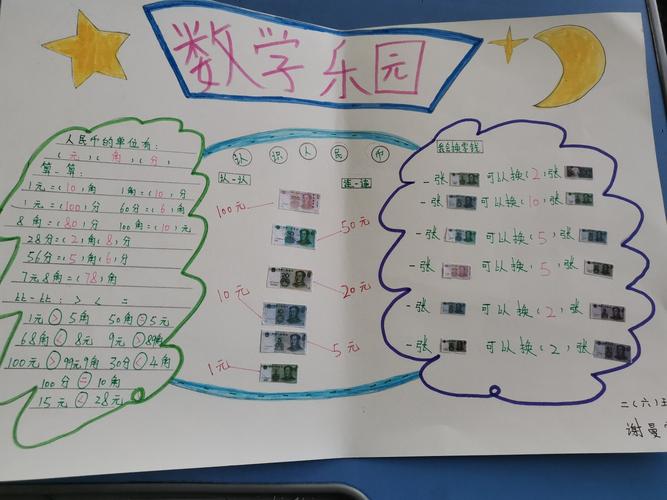 数学乐园
人民币的单位有:
(元)、(角)、(分)
算一算:
1元=(10)角 1角=(10)分
1元=(100)分 60分=(6)角
8角=(80)分 100角=(10)元
28分=(2)角(8)分
56分=(5)角(6)分
7元8角=(78)角
比一比: > < =
1元>5角 50角=5元
68角<8元 9元>89角
100元>99元9角 30分<4角
100分=10角
15元<28元
认识人民币
认一认 连一连
100元
50元
20元
10元
5元
1元
我会换零钱
一张 可以换(2)张
一张 可以换(10)张
一张 可以换(5)张
一张 可以换(5)张
一张 可以换(2)张
一张 可以换(2)张
二(六)
谢曼